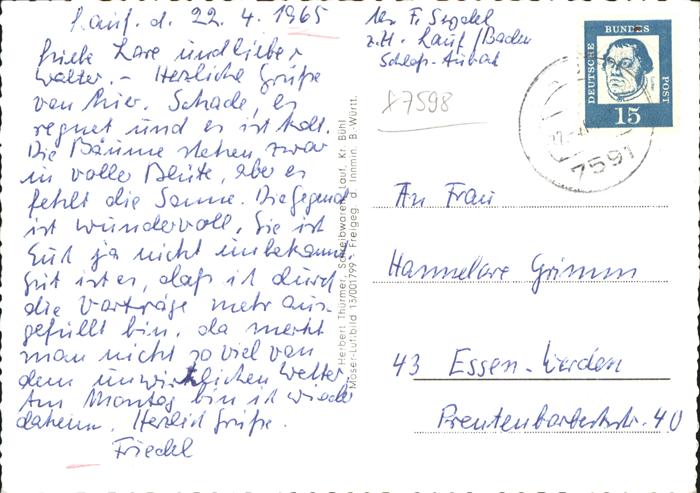 Lauf. d. 22. 4. 1965
Liebe Lore und lieber
Walter. - Herzliche Grüße
von hier. Schade, es
regnet und es ist kalt.
Die Bäume stehen zwar
in voller Blüte, aber es
fehlt die Sonne. Die Gegend
ist wundervoll, Sie ist
Euch ja nicht unbekannt
Gut ist es, daß ich durch
die Vorträge mehr aus-
gefüllt bin, da merkt
man nicht so viel von
dem unwirtlichen Wetter.
Am Montag bin ich wieder
daheim. Herzlich Grüße.
Friedel
Herbert Thürmer, Schreibwaren, Lauf, Kr. Bühl
Moser-Luftbild 13/001799 - Freigeg. d. Innmin. B.-Württ.
F.
z.Zt. Lauf/Baden
Schloß-Aubach
7598
DEUTSCHE BUNDESPOST
15
7591
An Frau
Hannelore Grimm
43 Essen-Werden
40